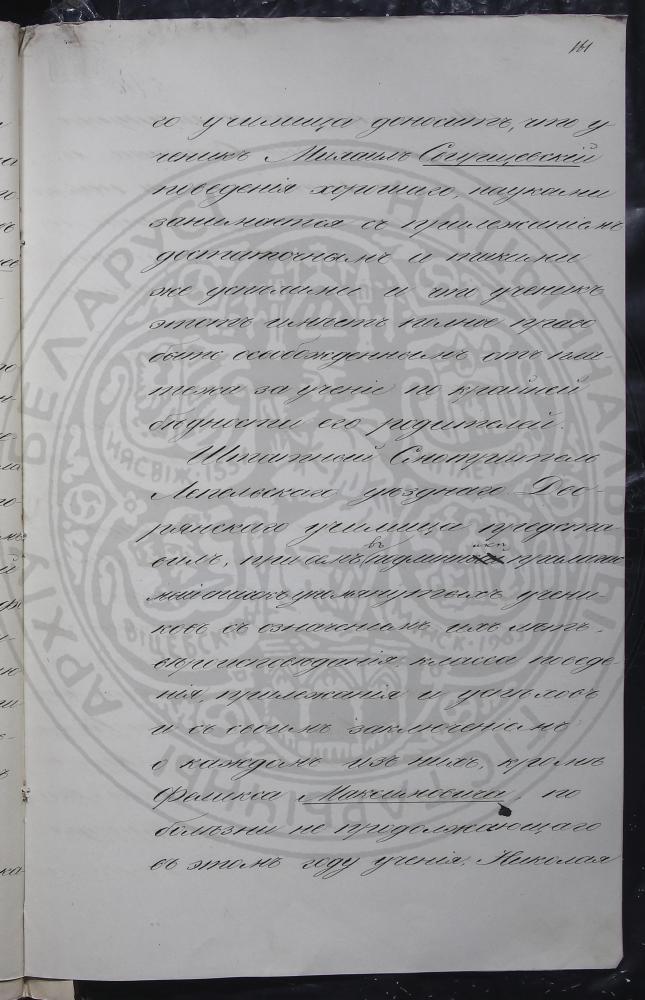 161
го училища доноситъ, что у
ченикъ Михаилъ
поведенія хорошаго, науками
занимается съ прилежаніемъ
достаточнымъ и такими
же успѣхами и что ученикъ
этотъ имѣетъ полное право
быть освобожденнымъ отъ пла-
тежа за ученіе по крайней
бѣдности его родителей.
Штатный Смотритель
Лепельскаго уѣзднаго Дво-
рянскаго училища предста-
вилъ, при семъ, въ
списокъ упомянутымъ учени-
ковъ съ означеніемъ ихъ лѣтъ,
вѣроисповѣданія, класса поведе-
нія, прилежанія и успѣховъ
и съ своимъ заключеніемъ
о каждомъ изъ нихъ, кромѣ
Феликса Максимовича, по
болѣзни не продолжающаго
въ этомъ году ученія, Николая
АРХІЎ БЕЛАРУСІ
НЯСВІЖ
ВІЦЕБСК
МІНСК